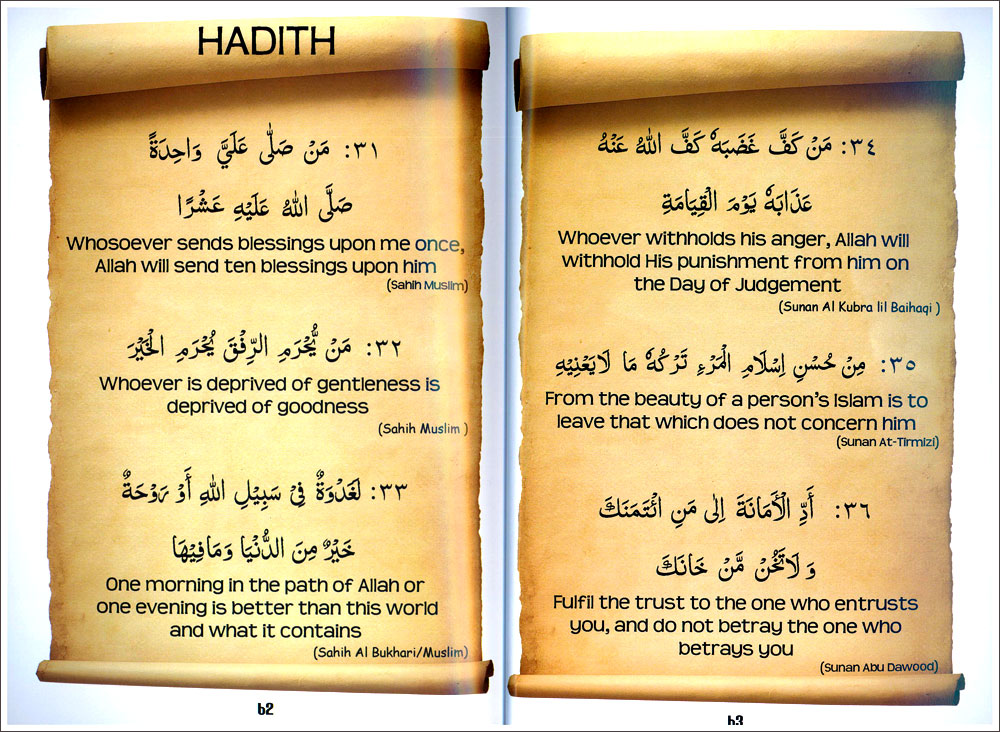 HADITH
٣١: مَنْ صَلّٰى عَلَيَّ وَاحِدَةً
صَلَّى اللهُ عَلَيْهِ عَشْرًا
Whosoever sends blessings upon me once,
Allah will send ten blessings upon him
(Sahih Muslim)
٣٢: مَنْ يُّحْرَمِ الرِّفْقَ يُحْرَمِ الْخَيْرَ
Whoever is deprived of gentleness is
deprived of goodness
(Sahih Muslim )
٣٣: لَغَدْوَةٌ فِيْ سَبِيْلِ اللهِ أَوْ رَوْحَةٌ
خَيْرٌ مِنَ الدُّنْيَا وَمَافِيْهَا
One morning in the path of Allah or
one evening is better than this world
and what it contains
(Sahih Al Bukhari/Muslim)
b2
٣٤: مَنْ كَفَّ غَضَبَهٗ كَفَّ اللهُ عَنْهُ
عَذَابَهٗ يَوْمَ الْقِيَامَةِ
Whoever withholds his anger, Allah will
withhold His punishment from him on
the Day of Judgement
(Sunan Al Kubra lil Baihaqi )
٣٥: مِنْ حُسْنِ اِسْلَامِ الْمَرْءِ تَرْكُهٗ مَا لَايَعْنِيْهِ
From the beauty of a person's Islam is to
leave that which does not concern him
(Sunan At-Tirmizi)
٣٦: أَدِّ الْأَمَانَةَ اِلٰى مَنِ ائْتَمَنَكَ
وَ لَاتَخُنْ مَّنْ خَانَكَ
Fulfil the trust to the one who entrusts
you, and do not betray the one who
betrays you
(Sunan Abu Dawood)
b3